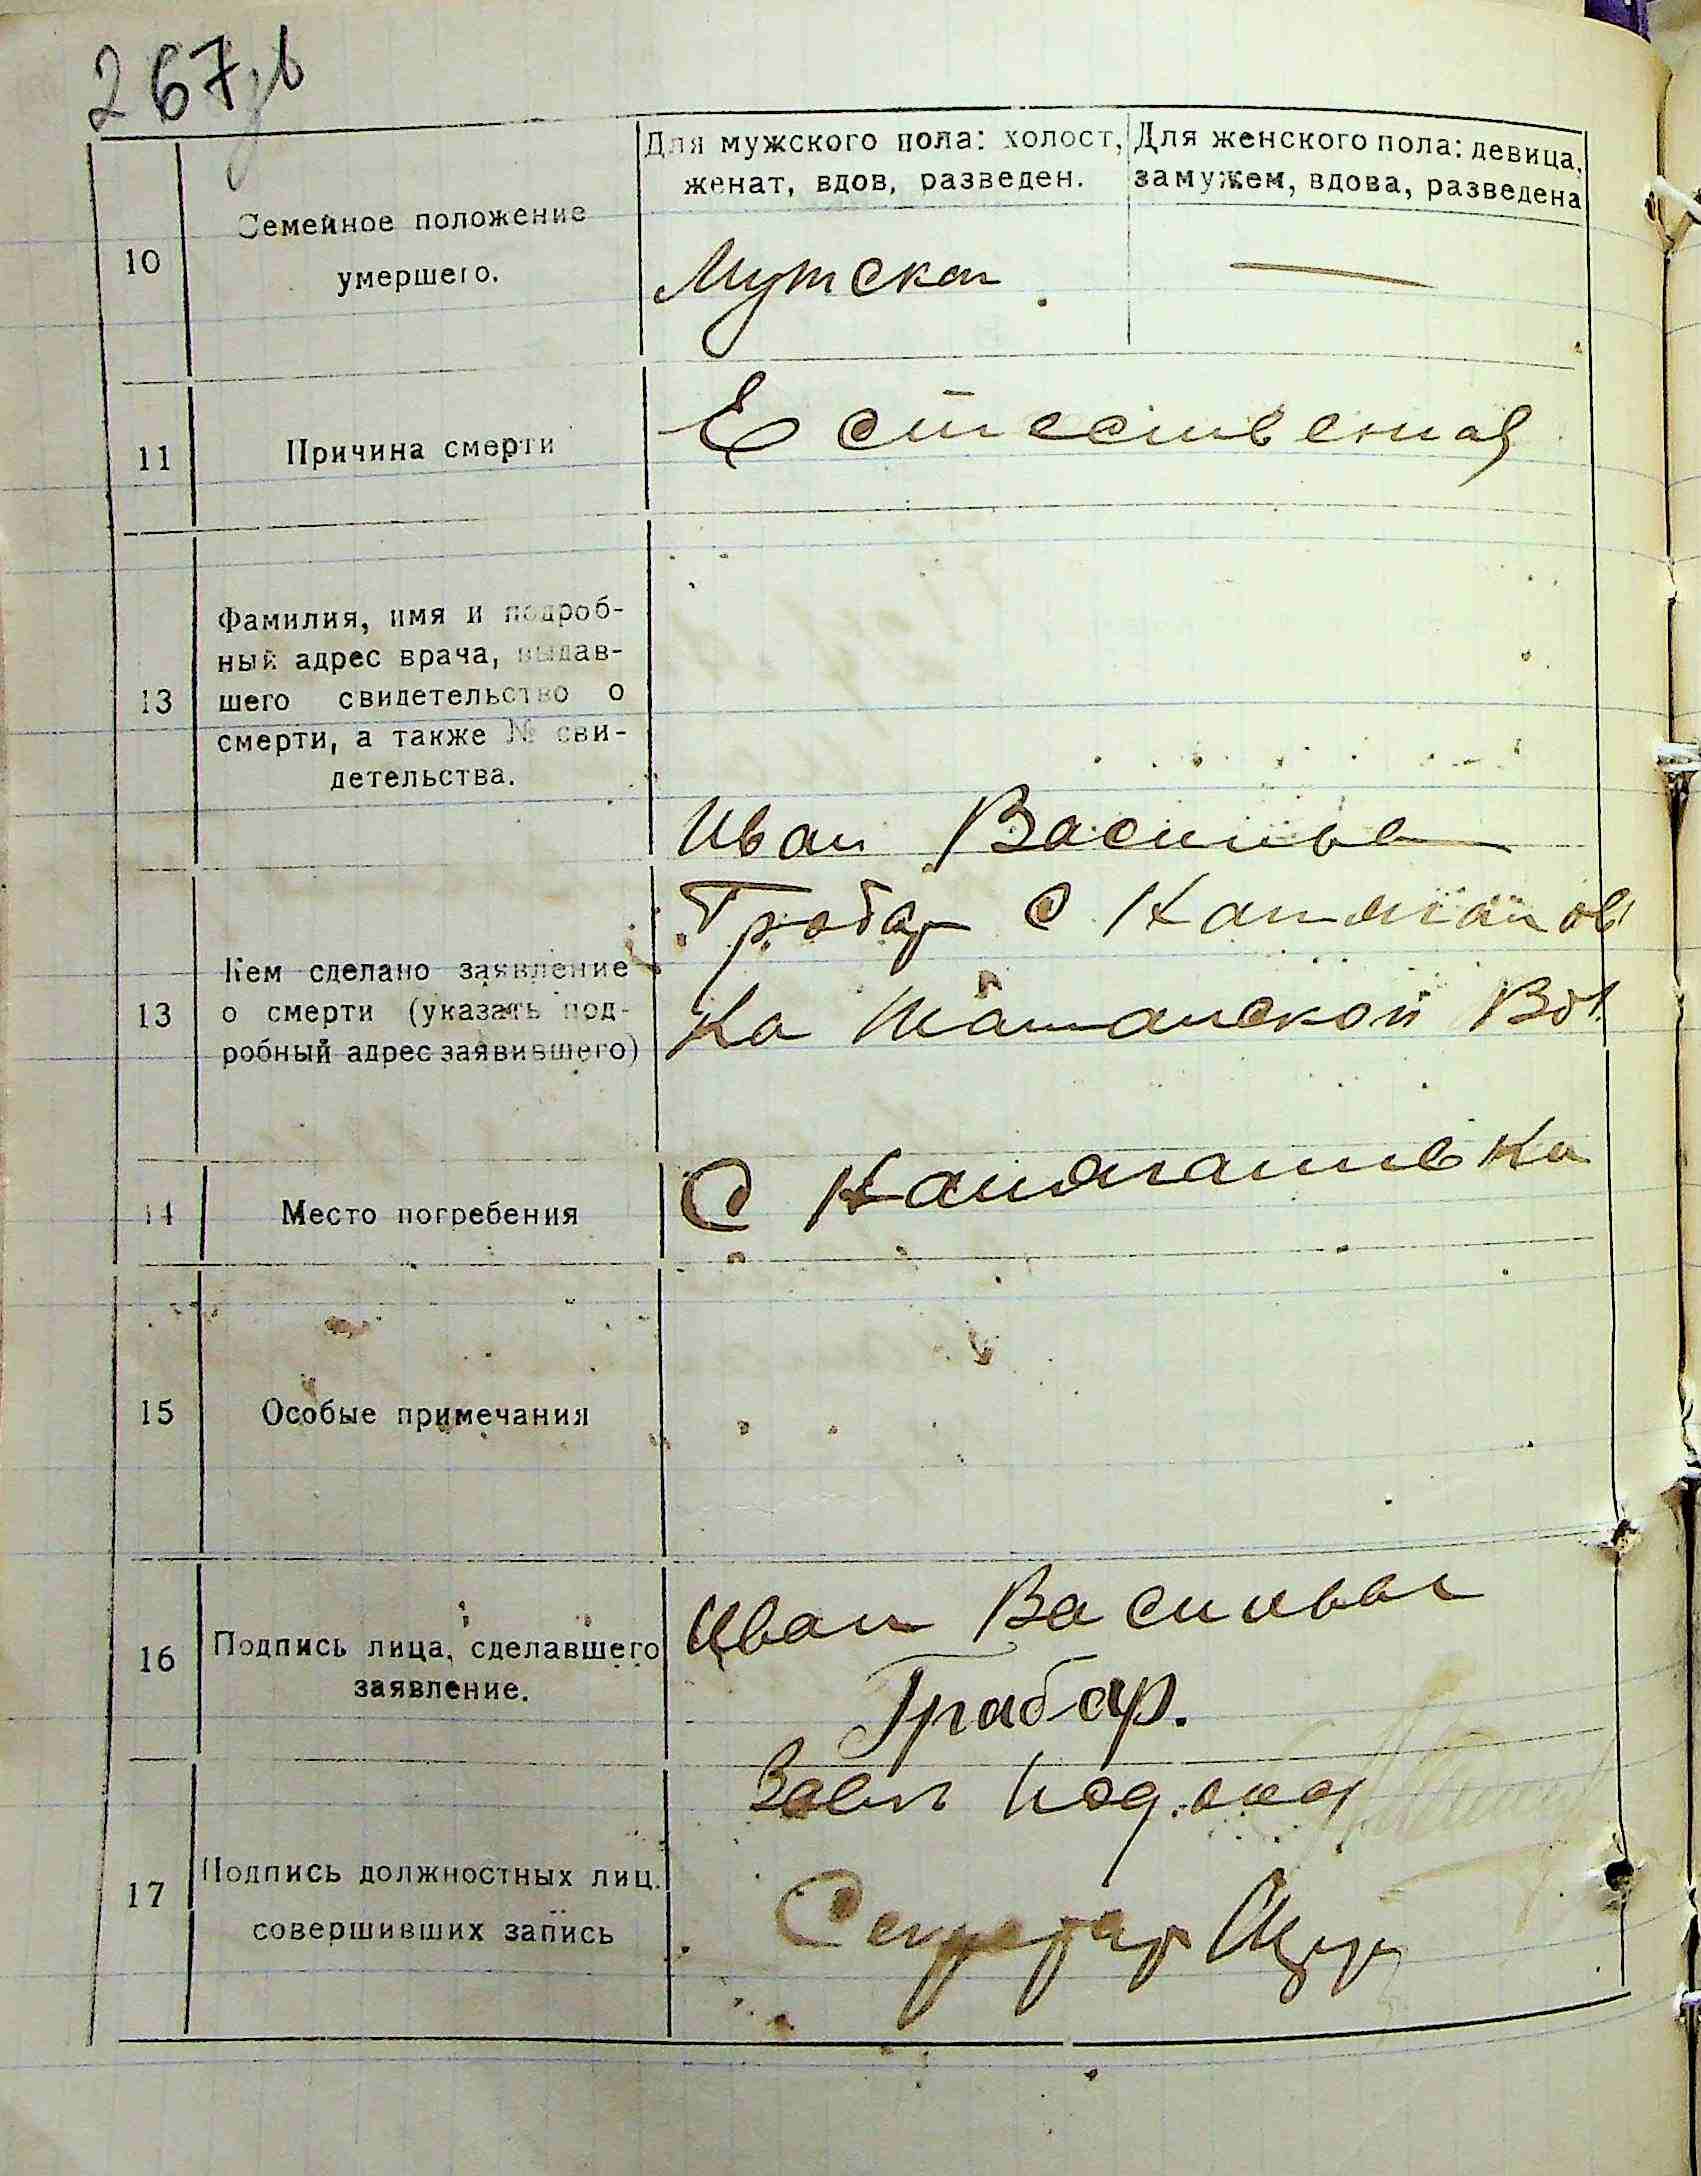 267зв
Для мужского пола: холост,
женат, вдов, разведен.
Для женского пола: девица,
замужем, вдова, разведена
10
Семейное положение
умершего.
Мужской
—
11
Причина смерти
Естественая
13
Фамилия, имя и подроб-
ный адрес врача, выдав-
шего свидетельство о
смерти, а также № сви-
детельства.
13
Кем сделано заявление
о смерти (указать под-
робный адрес заявившего)
Иван Василев
Грабар С
ка Вол.
14
Место погребения
С
15
Особые примечания
16
Подпись лица, сделавшего
заявление.
Иван Василев
Грабар.
17
Подпись должностных лиц.
совершивших запись
Завп
Секретар